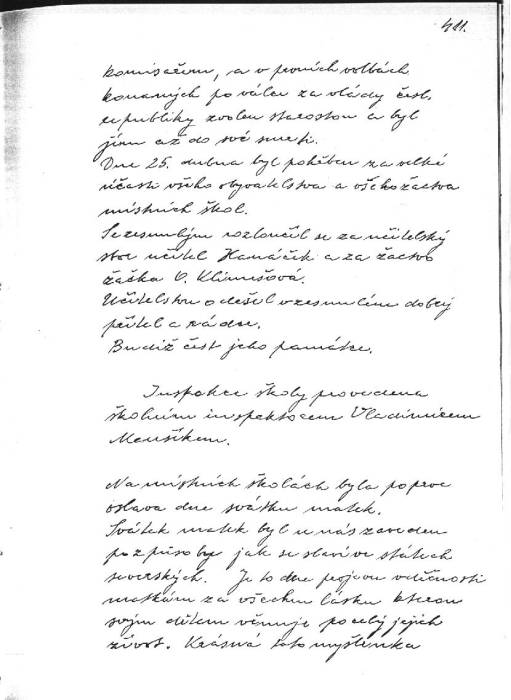 411.
komisařem, a v prvních volbách
konaných po válce za vlády česk.
republiky zvolen starostou a byl
jím až do své smrti.
Dne 25. dubna byl pohřben za velké
účasti všeho obyvatelstva a všeho žactva
místních škol.
Se zesnulým rozloučil se za učitelský
sbor učitel Hanáček a za žactvo
žačka O. Klimešová.
Učitelstvu odešel v zesnulém dobrý
přítel a rádce.
Budiž čest jeho památce.
Inspekce školy provedena
školním inspektorem Vladimírem
Menšíkem.
Na místních školách byla poprve
oslava dne svátku matek.
Svátek matek byl u nás zaveden
po způsobu jak se slaví ve státech
severských. Je to den projevu vděčnosti
matkám za všechnu lásku kterou
svým dětem věnuje po celý jejich
život. Krásná tato myšlenka